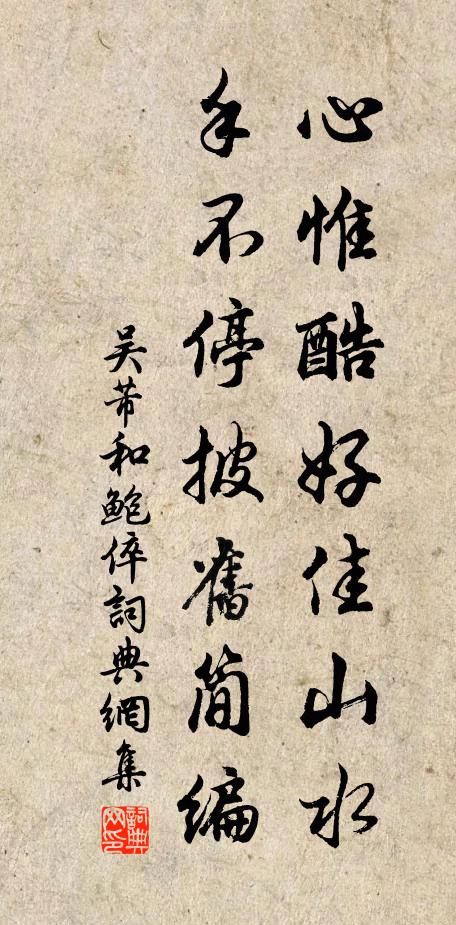 心惟酷好佳山水
手不停披舊簡編
吴芾和鮑倅詞典網集
詞典網印